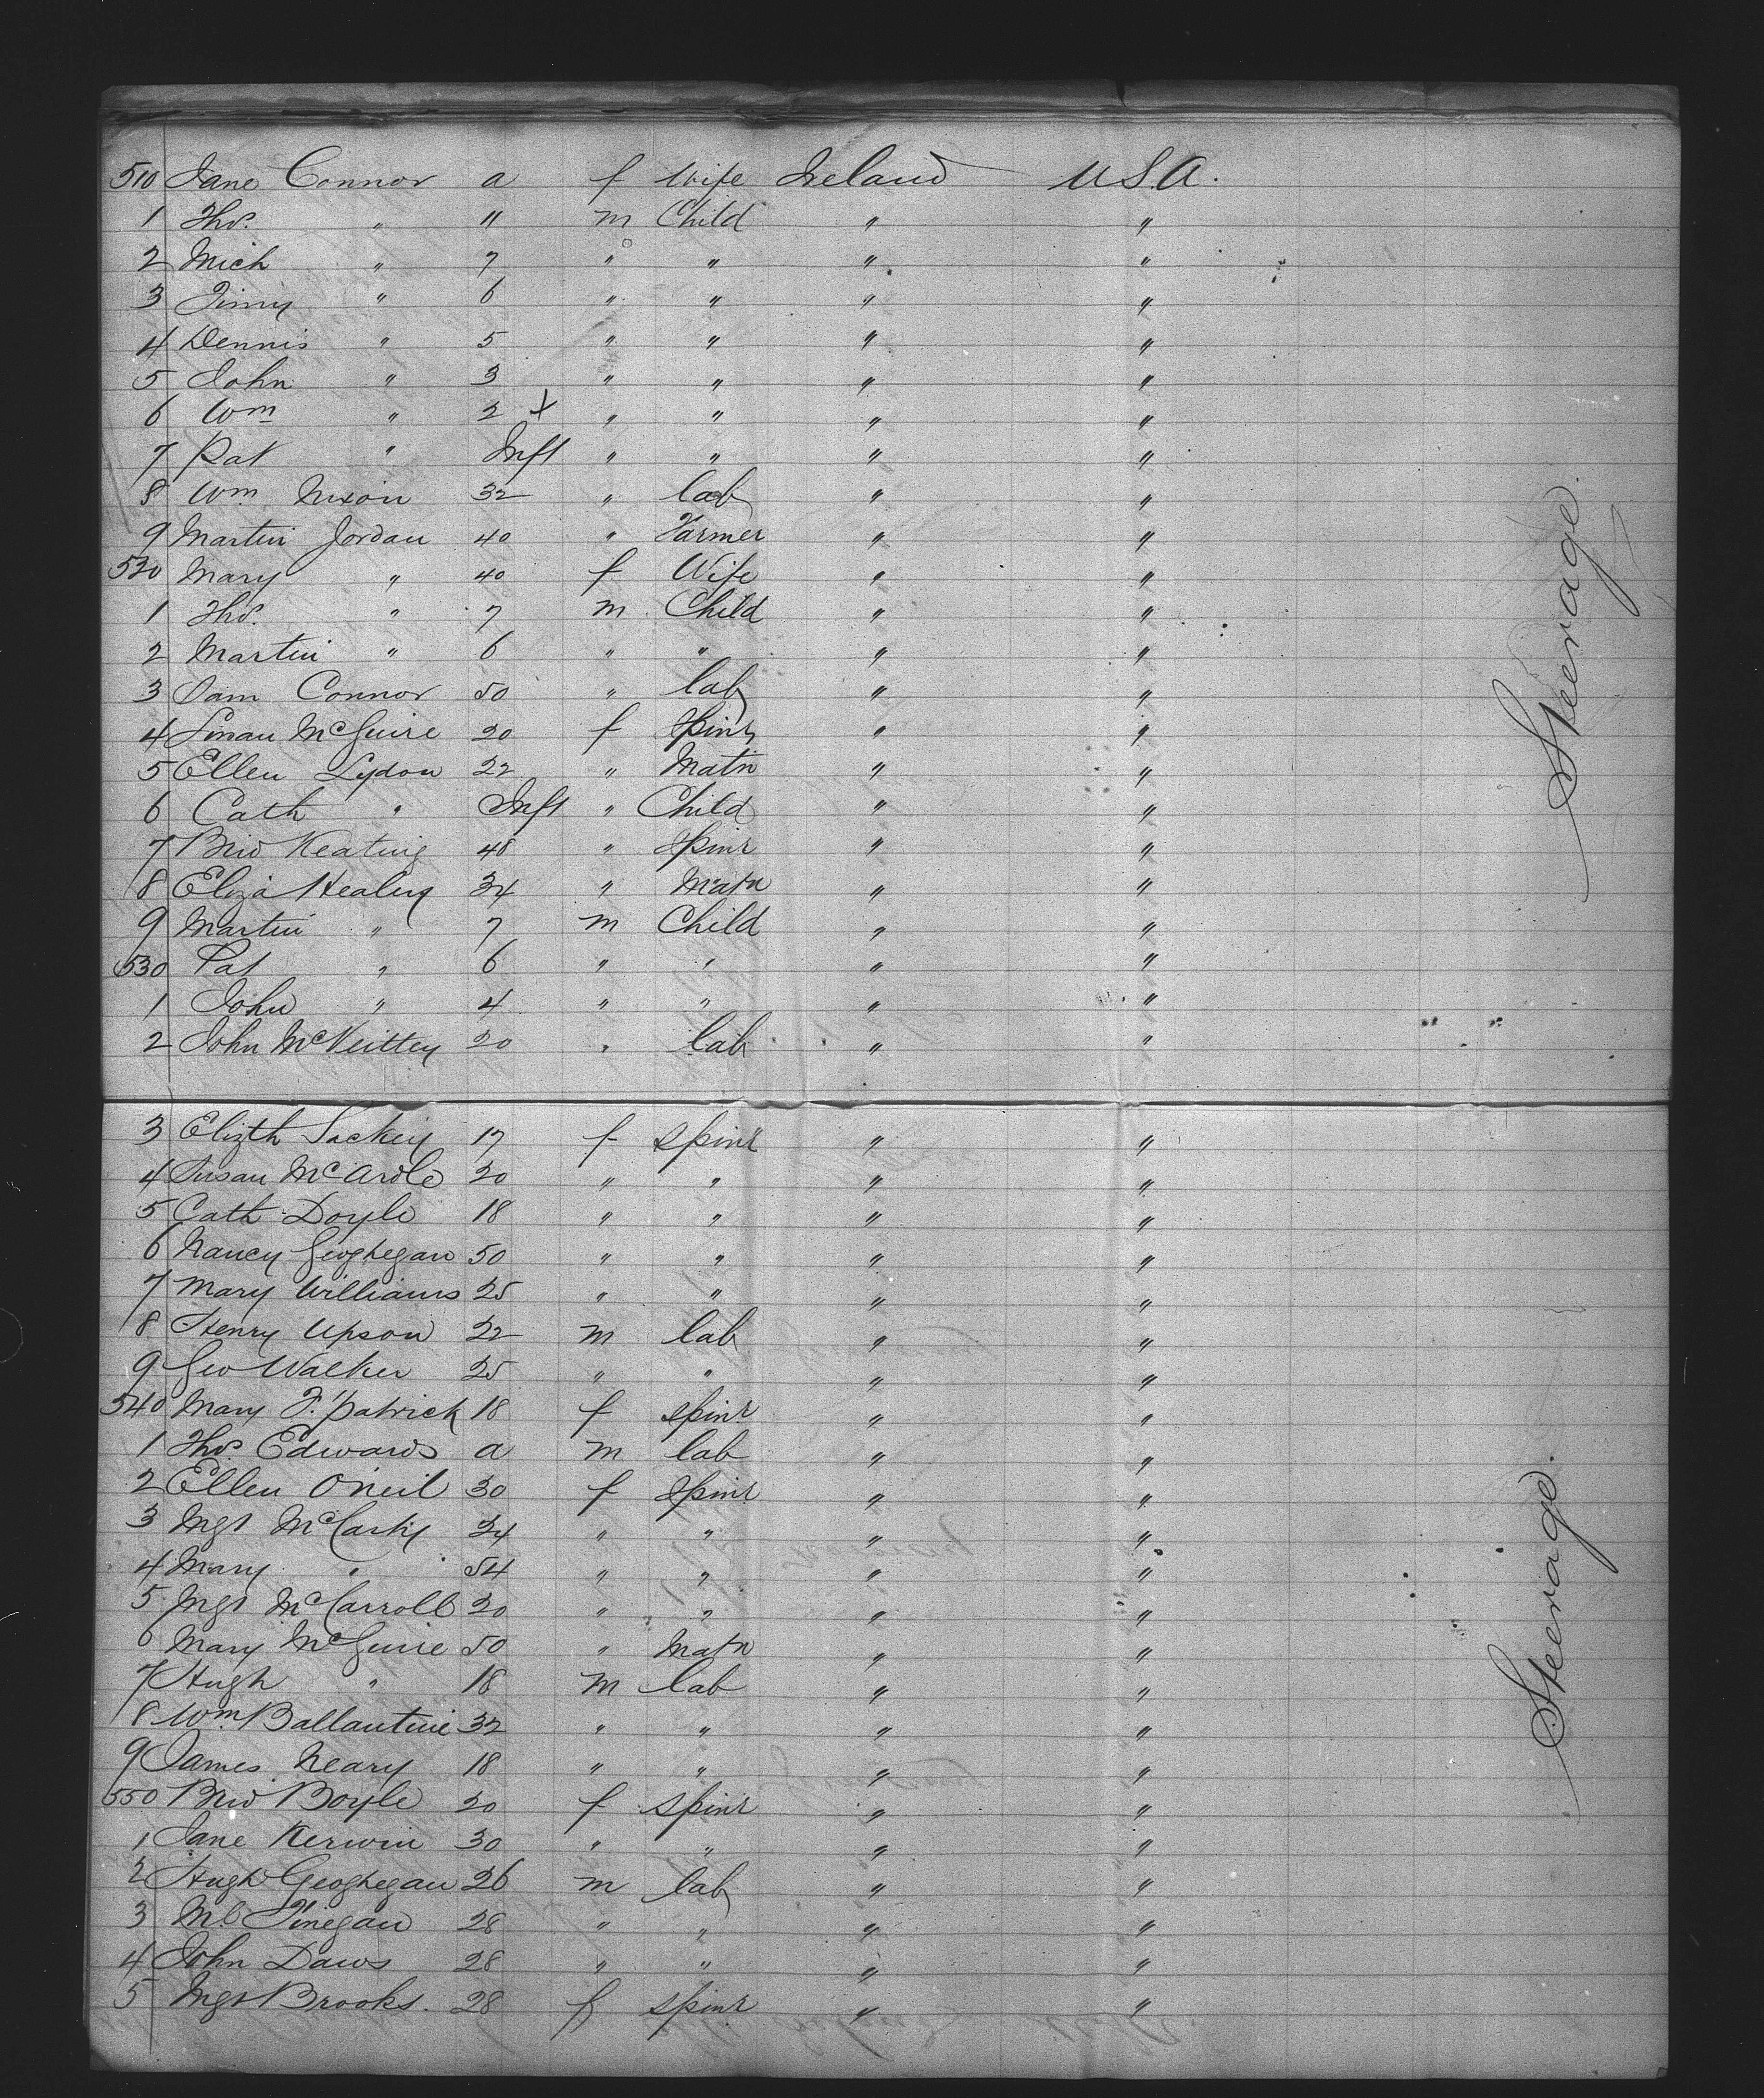 510 Jane Connor a f Wife Ireland U.S.A.
1 Thos. " 11 m Child " "
2 Mich " 7 " " " "
3 Jimy " 6 " " " "
4 Dennis " 5 " " " "
5 John " 3 " " " "
6 Wm " 2 x " " " "
7 Pat " Inft " " " "
8 Wm Nixon 32 " lab " "
9 Martin Jordan 40 " Farmer " "
520 Mary " 40 f Wife " "
1 Thos. " 7 m Child " "
2 Martin " 6 " " " "
3 Sam Connor 50 " lab " "
4 McGuire 20 f Spinr " "
5 Ellen Lydon 22 " Matn " "
6 Cath " Inft " Child " "
7 Brid Keating 48 " Spinr " "
8 Eliza Healey 34 " Matn " "
9 Martin " 7 m Child " "
530 Pat " 6 " " " "
1 John " 4 " " " "
2 John McVeittey 20 " lab " "
3 Elizth Sackey 17 f Spinr " "
4 Susan McArdle 20 " " " "
5 Cath Doyle 18 " " " "
6 Nancy Geoghegan 50 " " " "
7 Mary Williams 25 " " " "
8 Henry Upson 22 m lab " "
9 Geo Walker 25 " " " "
540 Mary F.'patrick 18 f Spinr " "
1 Thos. Edwards a m lab " "
2 Ellen O'neil 30 f Spinr " "
3 Mgt McCarty 24 " " " "
4 Mary " 54 " " " "
5 Mgt McCarroll 20 " " " "
6 Mary McGuire 50 " Matn " "
7 Hugh " 18 m lab " "
8 Wm Ballantine 32 " " " "
9 James Neary 18 " " " "
550 Brid Boyle 20 f Spinr " "
1 Jane Kerwin 30 " " " "
2 Hugh Geoghegan 26 m lab " "
3 Ml Finegan 28 " " " "
4 John Daws 28 " " " "
5 Mgt Brooks. 28 f Spinr " "
Steerage.
Steerage.